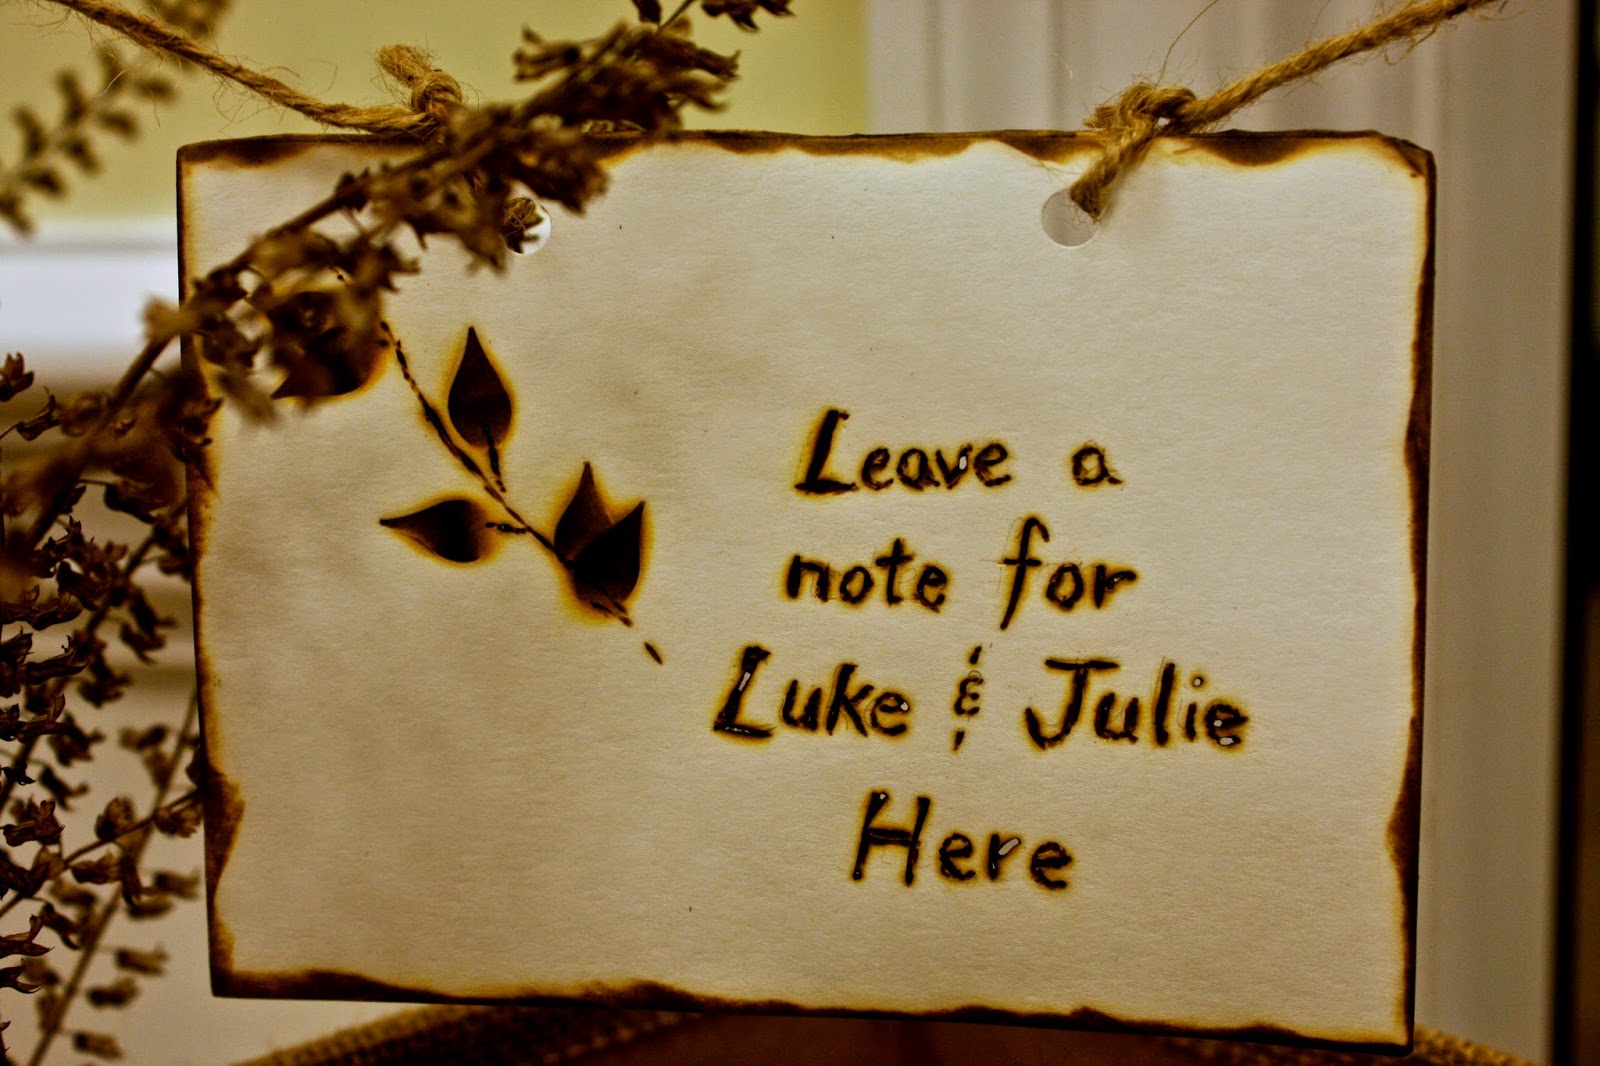 Leave a
note for
Luke & Julie
Here